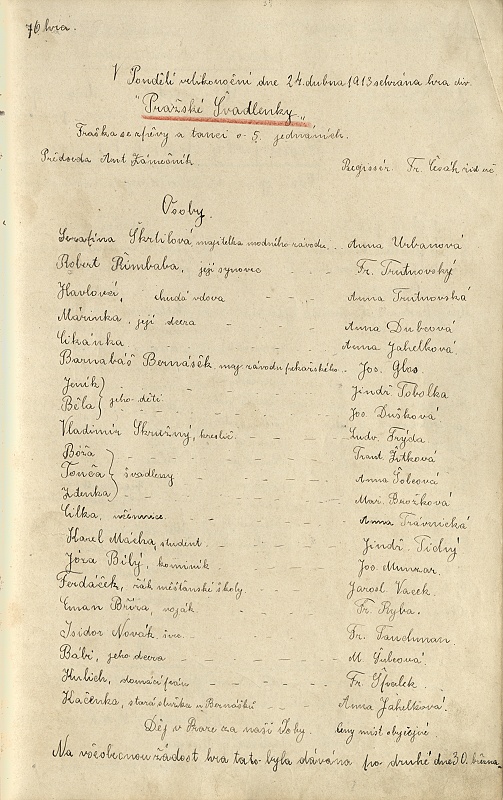 76 hra.
V Pondělí velikonoční dne 24. dubna 1913 sehrána hra div.
"Pražské Švadlenky"
Fraška se zpěvy a tanci o 5. jednáních.
Předseda Ant Zámečník. Regissér. Fr. Čcák
Osoby.
Serafína Škrtilová majitelka modního závodu - Anna Urbanová
Robert Řimbaba, její synovec - - Fr. Trutnovský
Havlová, chudá vdova - - Anna Trutnovská
Mářinka, její dcera - - Anna Dubcová
Cikánka - - Anna Jahelková
Barnabáš Bernášek maj závodu pekařského - Jos. Glos
Jeník
Běla } jeho děti - - Jindř Tobolka
Jos. Dušková
Vladimír Skružný, kreslič - - Ludv. Frýda
Bóža Frant. Žitková
Tonča } švadleny - - Anna Šobcová
Zdenka Mař. Brožková
Cilka, učennice - - Anna Trávnická
Karel Mácha, student - - Jindř. Tichý
Józa Bílý, kominík - - Jos. Munzar.
Ferdáček, žák měšťanské školy - - Jarosl. Vacek.
Eman Bříza, voják - - Fr. Ryba.
Isidor Novák, švec - - Fr. Fanchman.
Bábi, jeho dcera - - M. Šulcová.
Hulich, domácí pán - - Fr.
Kačenka, stará služka u Bernášků - - Anna Jahelková.
Děj v Praze za naší doby. Ceny míst obyčejné.
Na všeobecnou žádost hra tato byla dávána po druhé dne 30. března